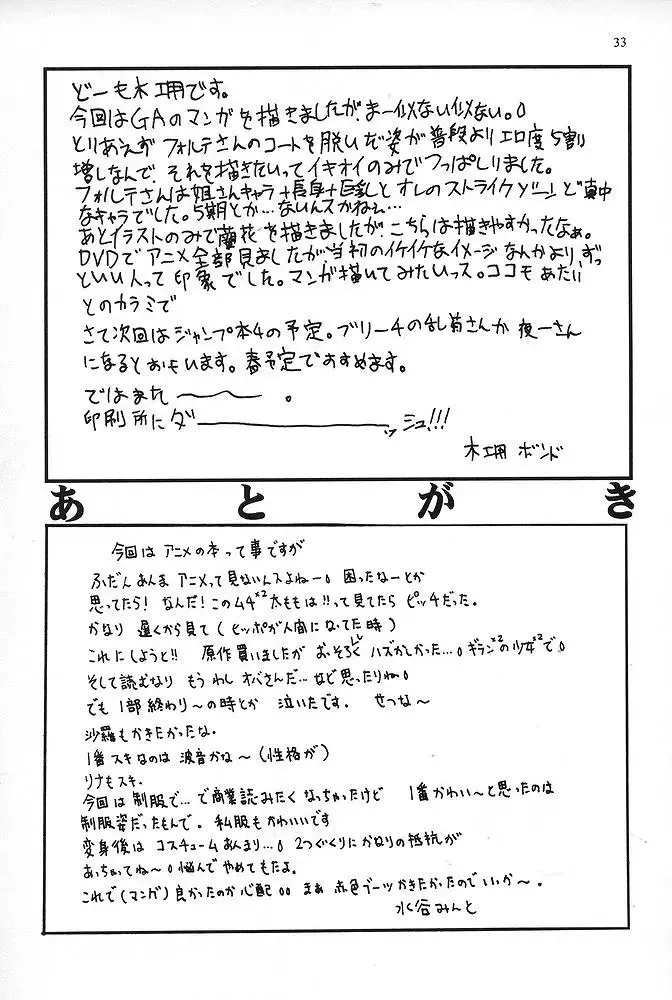 33
どーも木工用です。
今回はGAのマンガを描きましたが、まー似ない似ない。
とりあえずフォルテさんのコートを脱いだ姿が普段よりエロ度5割
増しなんで、それを描きたいってイキオイのみでつっぱしりました。
フォルテさんは姐さんキャラ+長身+巨乳とオレのストライクゾーンど真中
なキャラでした。5期とか…ないんスかねぇ…
あとイラストのみで蘭花を描きましたが、こちらは描きやすかったなぁ。
DVDでアニメ全部見ましたが、当初のイケイケなイメージなんかより、ずっ
といい人って印象でした。マンガ描いてみたいっス。ココモあたい
とのカラミで
さて次回はジャンプ本4の予定。ブリーチの乱菊さんか夜一さん
になるとおもいます。春予定ですすめます。
ではまた〜〜。
印刷所にダーーッシュ!!!
木工用ボンド
あとがき
今回はアニメの本って事ですが
ふだんあんまアニメって見ないんスよねー。困ったなーとか
思ってたら!なんだ!このムチ×2太ももは!!って見てたらピッチだった。
かなり遅くから見て(ヒッポが人間になってた時)
これにしようと!!原作買いましたがおっそろしくハズかしかった…。ギラン×2の少女×2で。
そして読むなりもうわしオバさんだ…など思ったりね。
でも1部終わり〜の時とか泣いたです。せつな〜
沙羅もかきたかったな。
1番スキなのは波音かな〜(性格が)
リナもスキ。
今回は制服で…で商業読みたくなっちゃったけど1番かわい〜と思ったのは
制服姿だったもんで。私服もかわいいです
変身後はコスチュームあんまり…。2つぐくりにかなりの抵抗が
あっちゃってね〜。悩んでやめてもたよ。
これで(マンガ)良かったのか心配。。まぁ赤色ブーツかきたかったのでいっか〜。
水谷みんと